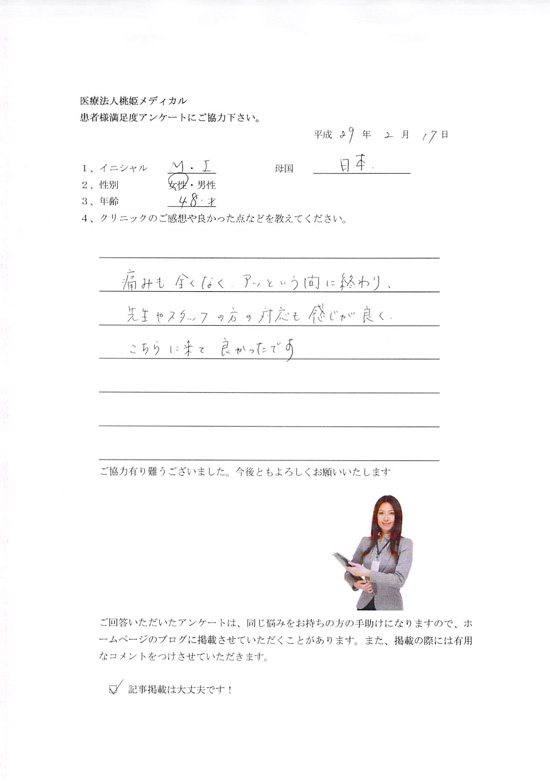 医療法人桃姫メディカル
患者様満足度アンケートにご協力下さい。
平成 29 年 2 月 17 日
1、イニシャル M・I 母国 日本.
2、性別 女性・男性
3、年齢 48才
4、クリニックのご感想や良かった点などを教えてください。
痛みも全くなく、アッという間に終わり、
先生やスタッフの方の対応も感じが良く、
こちらに来て良かったです
ご協力有り難うございました。今後ともよろしくお願いいたします
ご回答いただいたアンケートは、同じ悩みをお持ちの方の手助けになりますので、ホ
ームページのブログに掲載させていただくことがあります。また、掲載の際には有用
なコメントをつけさせていただきます。
☑ 記事掲載は大丈夫です！